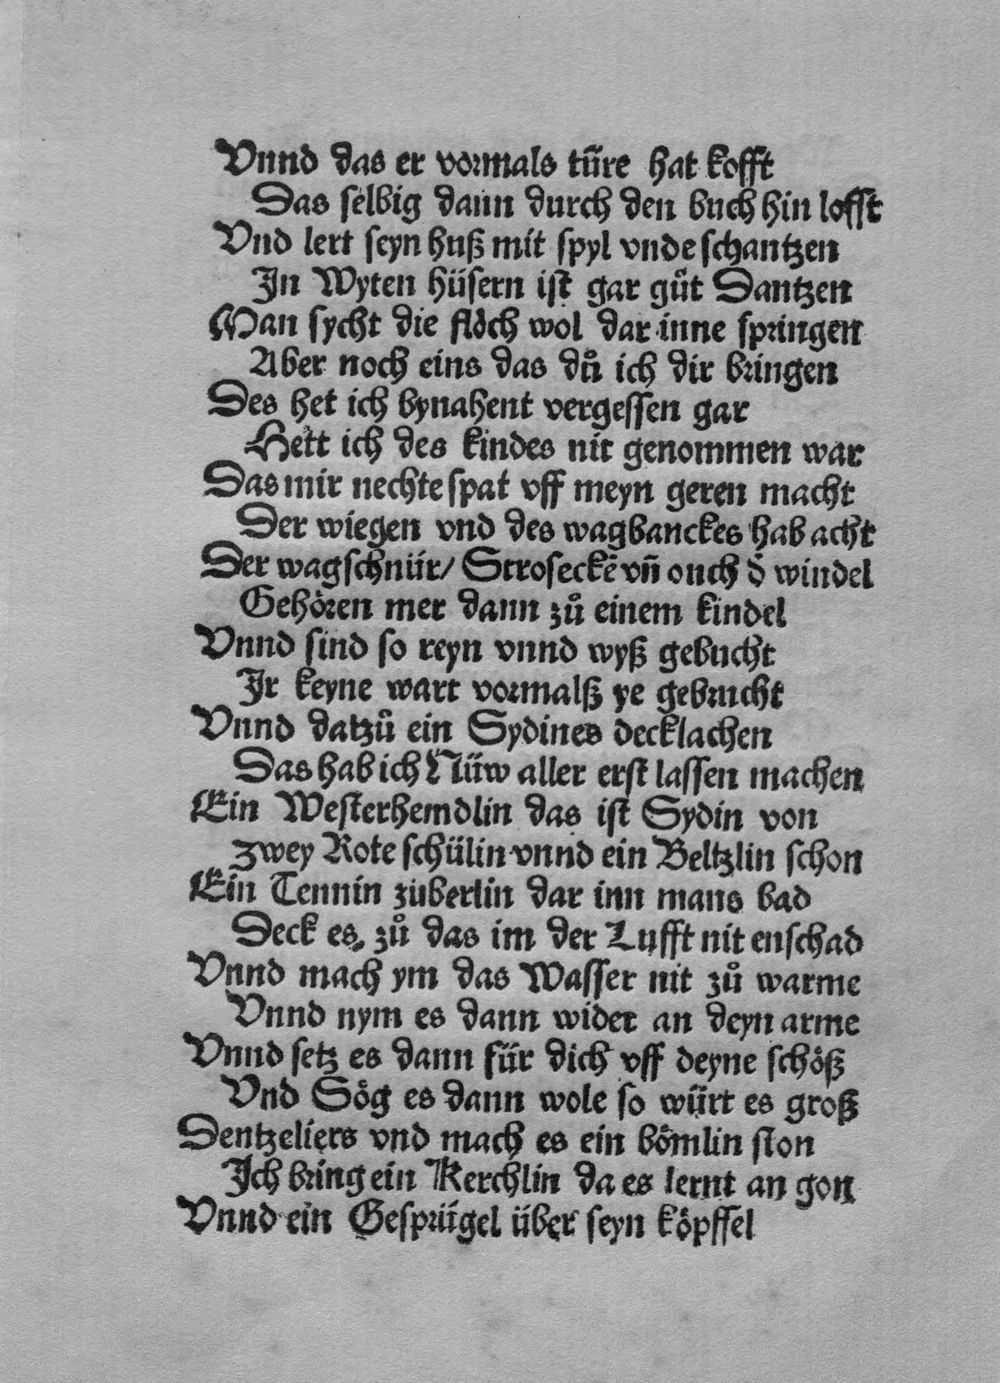 Vnnd das er vormals türe hat kofft
Das selbig dann durch den buch hin lofft
Vnd lert seyn huß mit spyl vnde schantzen
In Wyten hüsern ist gar gůt Dantzen
Man sycht die flöch wol dar inne springen
Aber noch eins das dů ich dir bringen
Des het ich bynahent vergessen gar
Hett ich des kindes nit genommen war
Das mir nechte spat vff meyn geren macht
Der wiegen vnd des wagbanckes hab acht
Der wagschnür/ Stroseckē vñ ouch d̕ windel
Gehören mer dann zů einem kindel
Vnnd sind so reyn vnnd wyß gebucht
Ir keyne wart vormalß ye gebrucht
Vnnd datzů ein Sydines decklachen
Das hab ich Nüw aller erst lassen machen
Ein Westerhemdlin das ist Sydin von
zwey Rote schülin vnnd ein Beltzlin schon
Ein Tennin züberlin dar inn mans bad
Deck es zů das im der Lufft nit enschad
Vnnd mach ym das Wasser nit zů warme
Vnnd nym es dann wider an deyn arme
Vnnd setz es dann für dich vff deyne schöß
Vnd Sög es dann wole so würt es groß
Dentzeliers vnd mach es ein bömlin ston
Ich bring ein Kerchlin da es lernt an gon
Vnnd ein Gesprügel über seyn köpffel